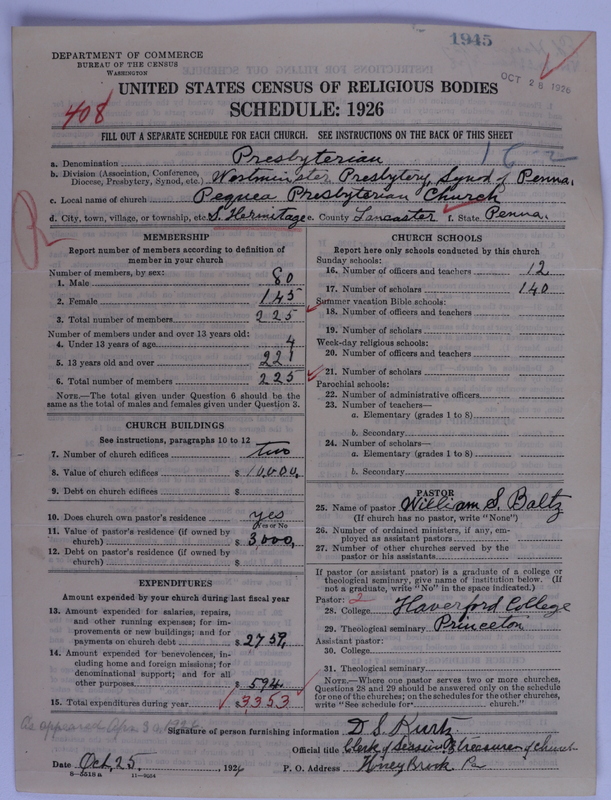 1945
DEPARTMENT OF COMMERCE
BUREAU OF THE CENSUS
WASHINGTON
OCT 28 1926
UNITED STATES CENSUS OF RELIGIOUS BODIES
408
SCHEDULE: 1926
FILL OUT A SEPARATE SCHEDULE FOR EACH CHURCH. SEE INSTRUCTIONS ON THE BACK OF THIS SHEET
a. Denomination Presbyterian
b. Division (Association, Conference, Diocese, Presbytery, Synod, etc.) Westminster Presbytery, Synod of Penna.
c. Local name of church Pequea Presbyterian Church
d. City, town, village, or township, etc. S. Hermitage e. County Lancaster f. State Penna.
MEMBERSHIP
Report number of members according to definition of
member in your church
Number of members, by sex:
1. Male 80
2. Female 145
3. Total number of members 225
Number of members under and over 13 years old:
4. Under 13 years of age 4
5. 13 years old and over 221
6. Total number of members 225
NOTE.—The total given under Question 6 should be the
same as the total of males and females given under Question 3.
CHURCH BUILDINGS
See instructions, paragraphs 10 to 12
7. Number of church edifices two
8. Value of church edifices $ 10,000.
9. Debt on church edifices $
10. Does church own pastor's residence yes
(Yes or No)
11. Value of pastor's residence (if owned by
church) $ 3,000.
12. Debt on pastor's residence (if owned by
church) $
EXPENDITURES
Amount expended by your church during last fiscal year
13. Amount expended for salaries, repairs,
and other running expenses; for im-
provements or new buildings; and for
payments on church debt $ 2759.
14. Amount expended for benevolences, in-
cluding home and foreign missions; for
denominational support; and for all
other purposes $ 594.
15. Total expenditures during year $ 3353
CHURCH SCHOOLS
Report here only schools conducted by this church
Sunday schools:
16. Number of officers and teachers 12
17. Number of scholars 140
Summer vacation Bible schools:
18. Number of officers and teachers
19. Number of scholars
Week-day religious schools:
20. Number of officers and teachers
21. Number of scholars
Parochial schools:
22. Number of administrative officers
23. Number of teachers—
a. Elementary (grades 1 to 8)
b. Secondary
24. Number of scholars—
a. Elementary (grades 1 to 8)
b. Secondary
PASTOR
25. Name of pastor William S. Baltz
(If church has no pastor, write "None")
26. Number of ordained ministers, if any, em-
ployed as assistant pastors
27. Number of other churches served by the
pastor or his assistants
If pastor (or assistant pastor) is a graduate of a college or
theological seminary, give name of institution below. (If
not a graduate, write "No" in the space indicated.)
Pastor: 2
28. College Haverford College
29. Theological seminary Princeton
Assistant pastor:
30. College
31. Theological seminary
NOTE.—Where one pastor serves two or more churches,
Questions 28 and 29 should be answered only on the schedule
for one of the churches; on the schedules for other churches,
write "See schedule for church."
Signature of person furnishing information D. S. Kurtz
Official title Clerk of Session & Treasurer of church
Date Oct. 25, 1926 P. O. Address Honey Brook Pa
8—5518a 11—9254